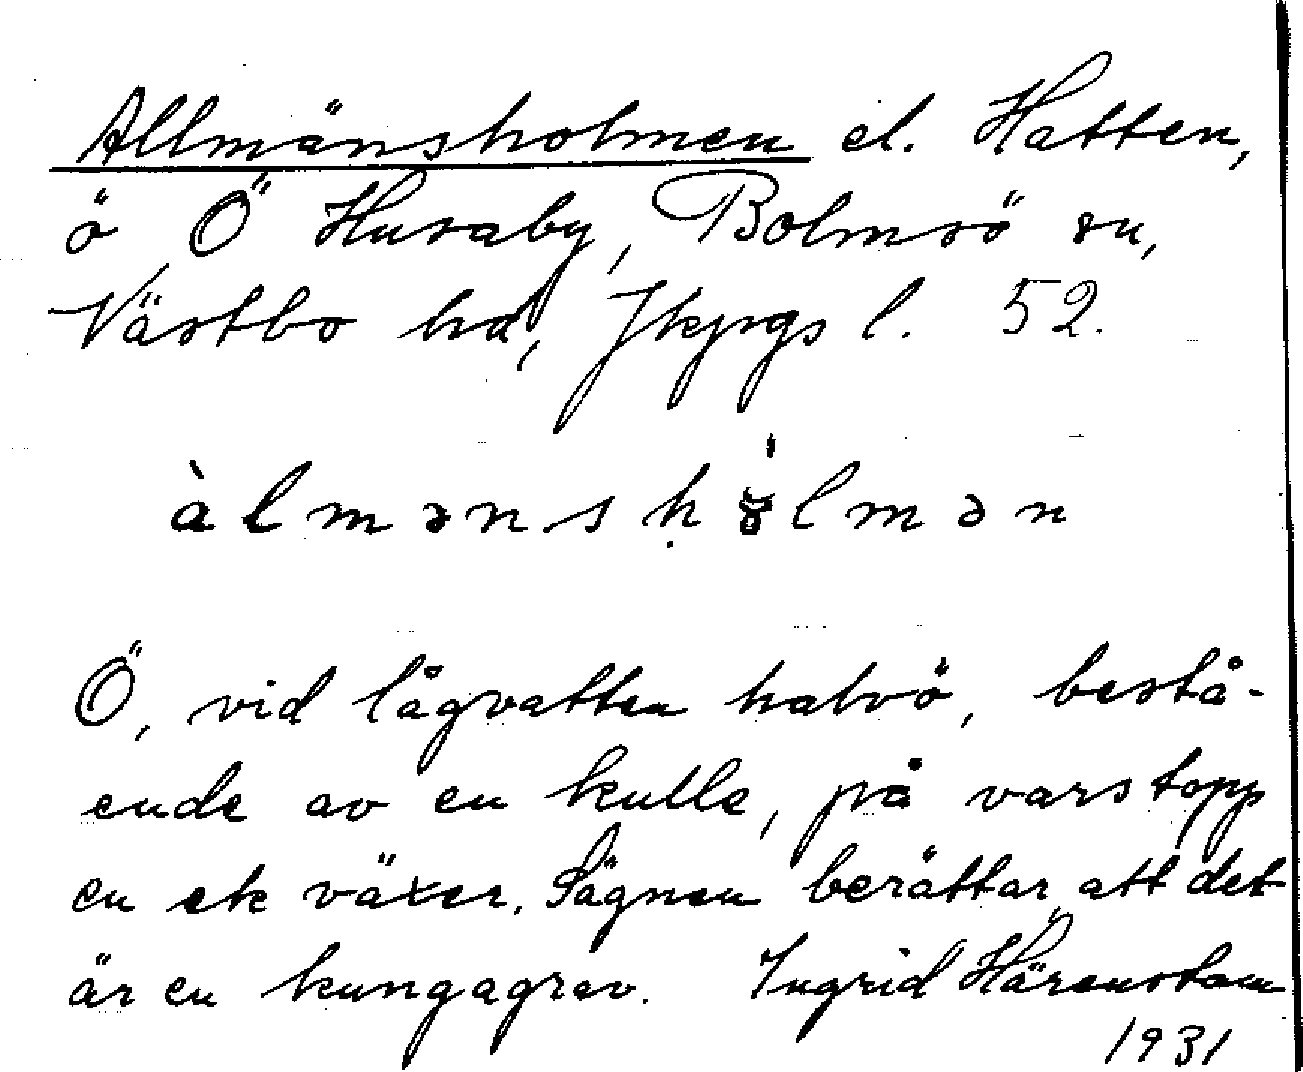 Allmänsholmen el. Hatten,
ö Ö Husaby, Bolmsö sn,
Västbo hd, Jkpgs l. 52.
àlmənshɵlmən
Ö, vid lågvatten halvö, bestå-
ende av en kulle, på vars topp
en ek växer. Sägnen berättar att det
är en kungagrav. Ingrid Härenstam
1931